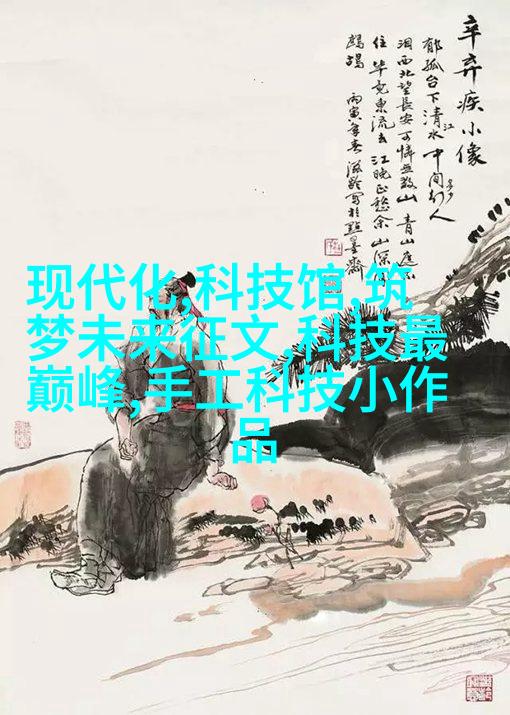 辛弃疾小像
郁孤台下清江水中间多少行人
泪西北望長安可憐無数山青山遮不
住毕竟東流去江晚正愁余山深闻
鹧鸪 丙寅年春滋龄写於點墨齋
现代化,科技馆,筑
梦未来征文,科技最
巅峰,手工科技小作
品